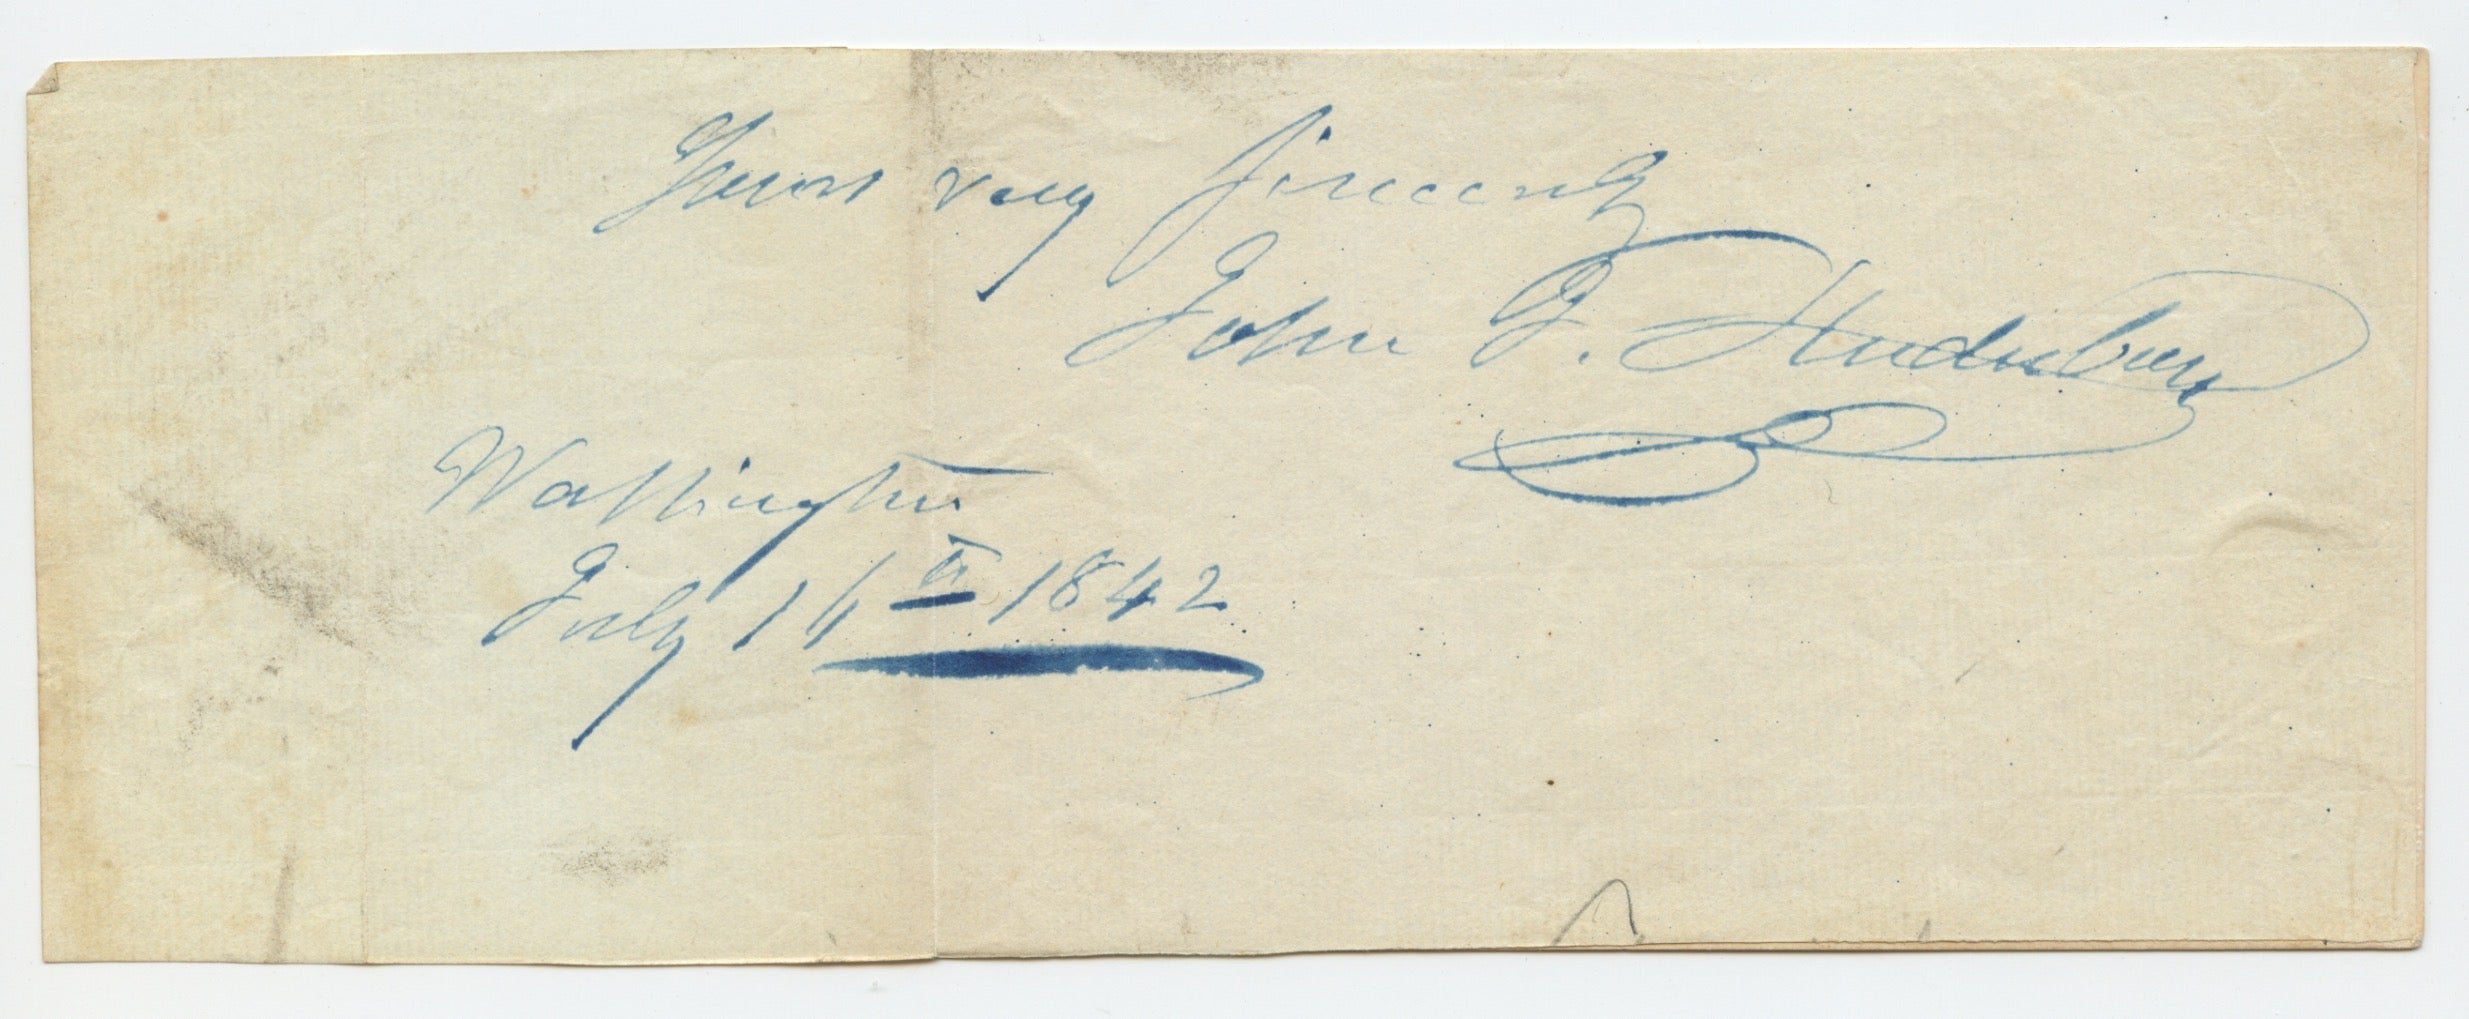 Yours very sincerely
John
Washington
July 16th 1842